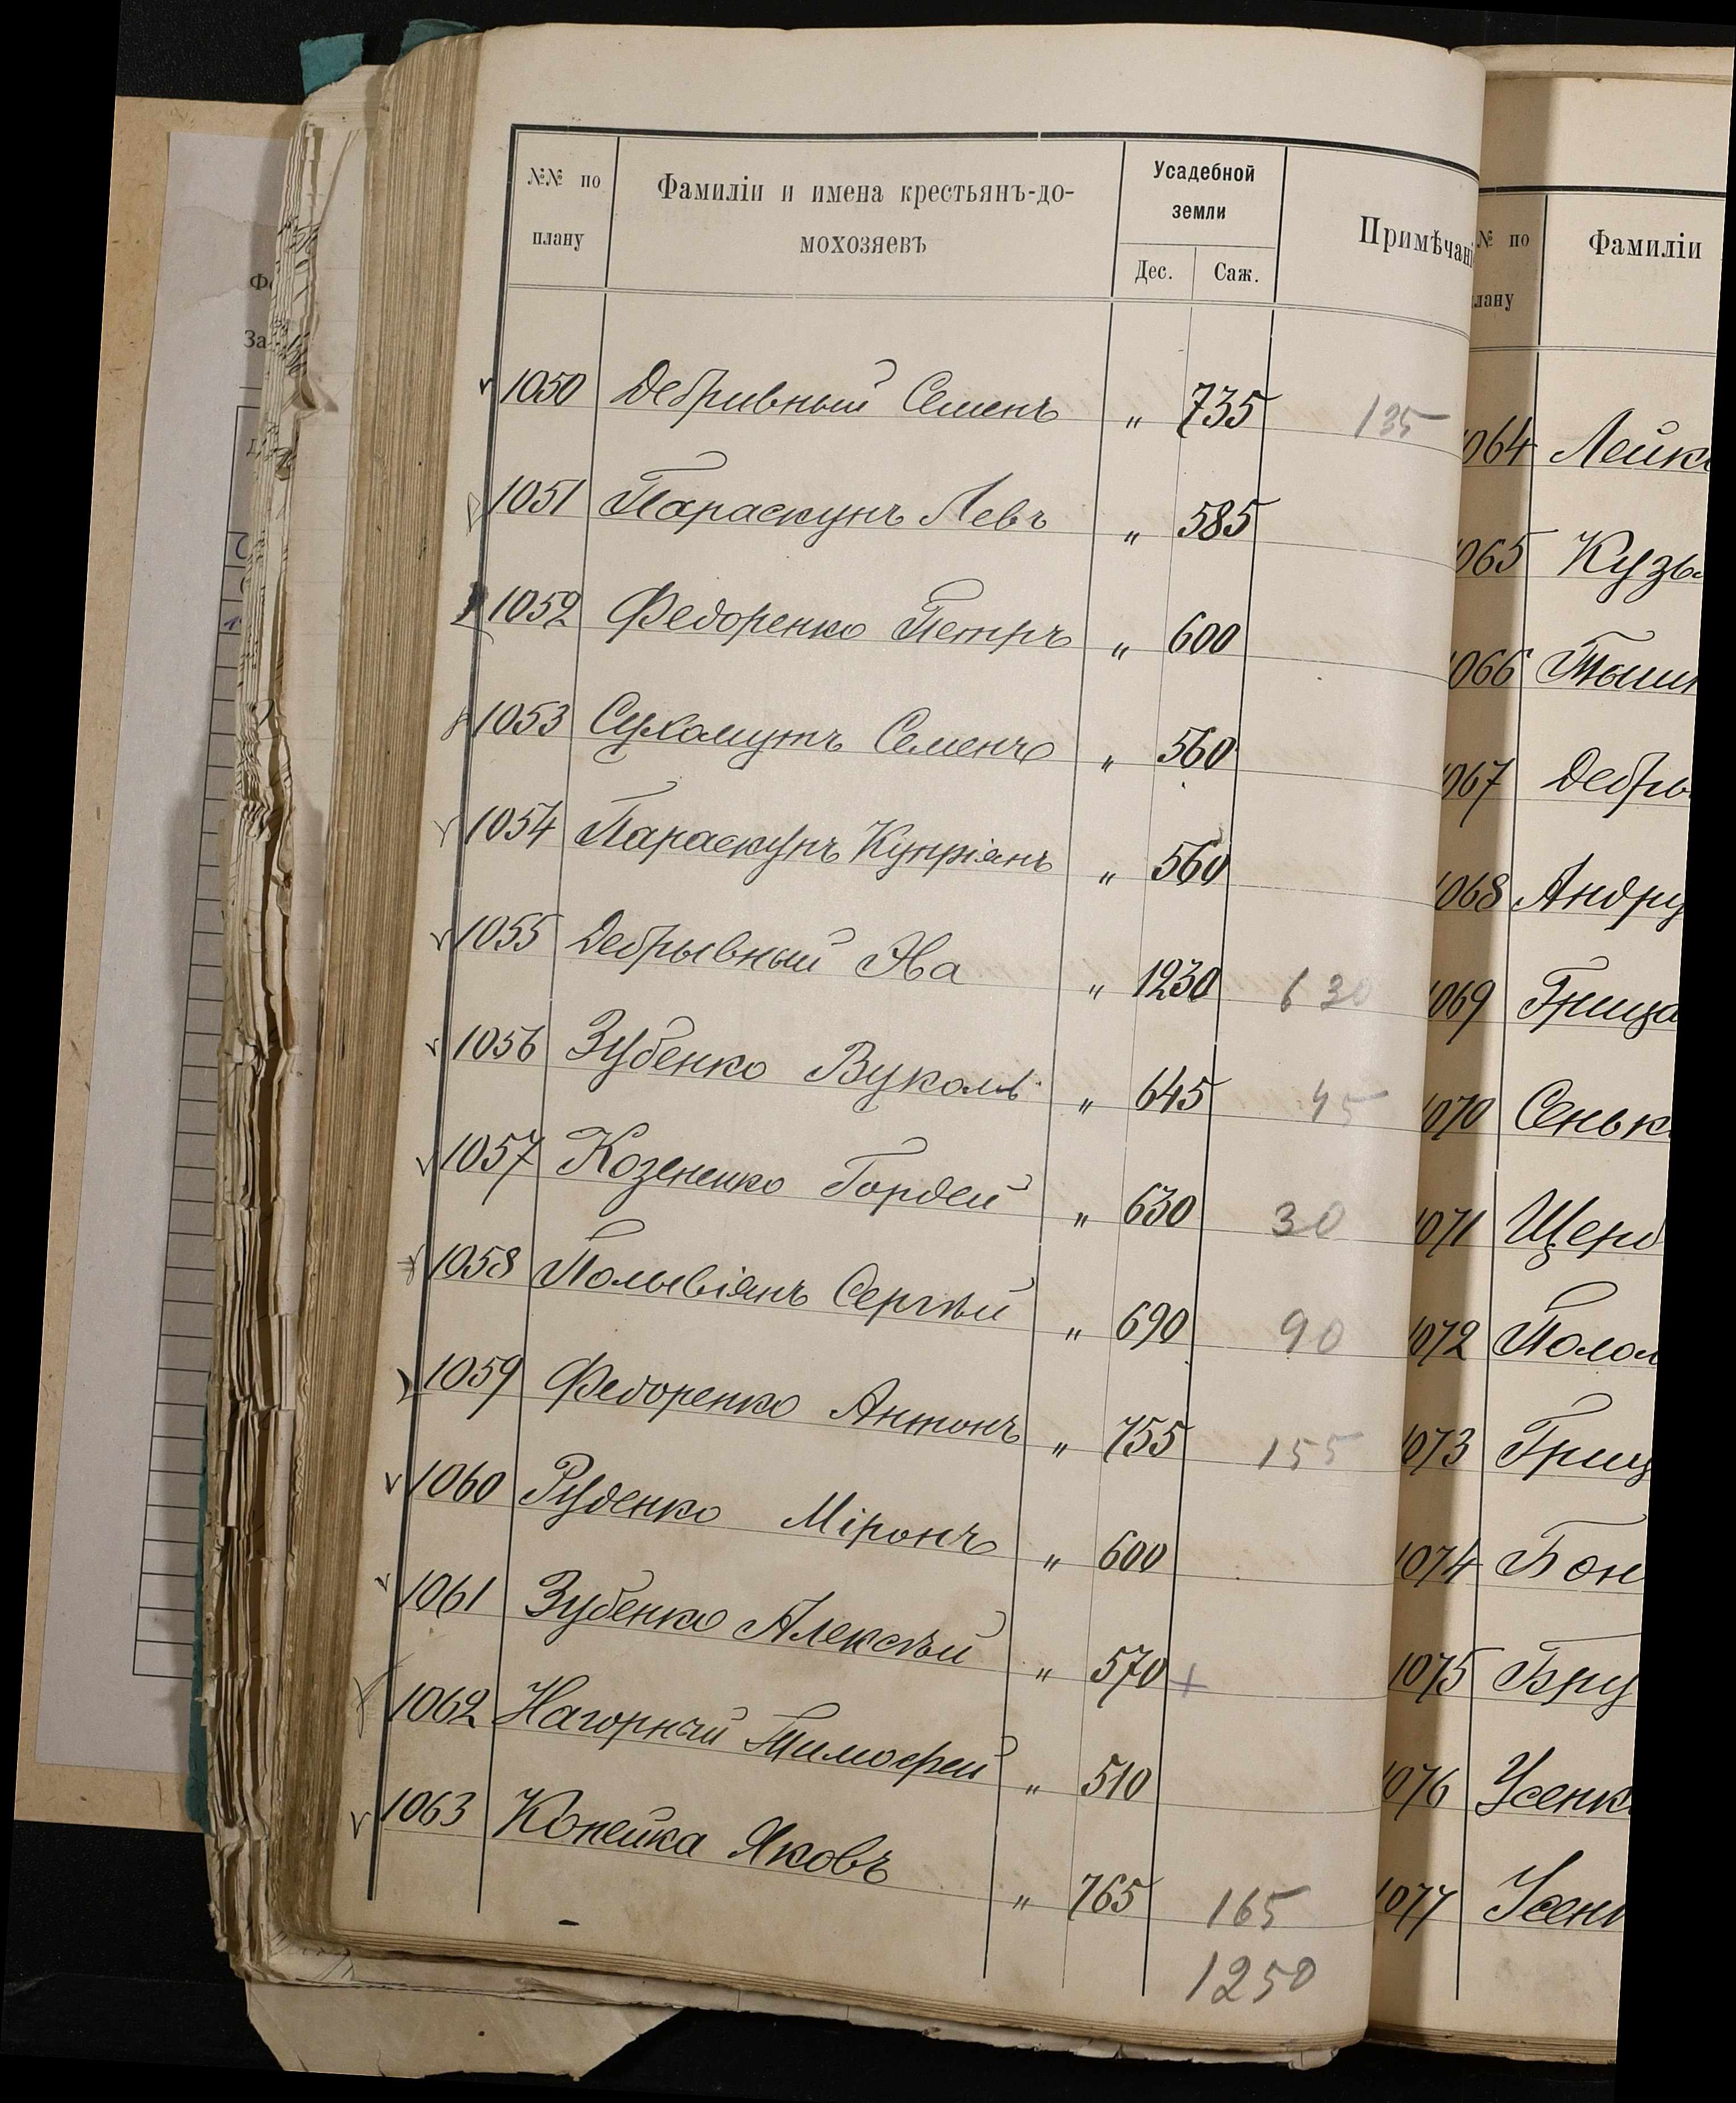 №№ по плану Фамиліи и имена крестьянъ-до-мохозяевъ Усадебной земли Дес. Саж. Примѣчані
1050 Дебривный Семенъ " 735 135
1051 Параскунъ Левъ " 585
1052 Федоренко Петръ " 600
1053 Сухомутъ Семенъ " 560
1054 Параскунъ Купріянъ " 560
1055 Дебрывный " 1230 630
1056 Зубенко Вуколъ " 645 45
1057 Козененко Гордей " 630 30
1058 Полывіянъ Сергѣй " 690 90
1059 Федоренко Антонъ " 755 155
1060 Руденко Міронъ " 600
1061 Зубенко Алексѣй " 570 +
1062 Нагорный Тимофей " 510
1063 Копейка Яковъ " 765 165
1250
№ по лану Фамиліи
1064 Лейк
1065 Кузь
1066 Тыш
1067 Дебры
1068 Андру
1069 Грица
1070 Сеньк
1071 Щерб
1072 Полом
1073 Гриц
1074 Бон
1075 Бру
1076 Усенк
1077 Усен